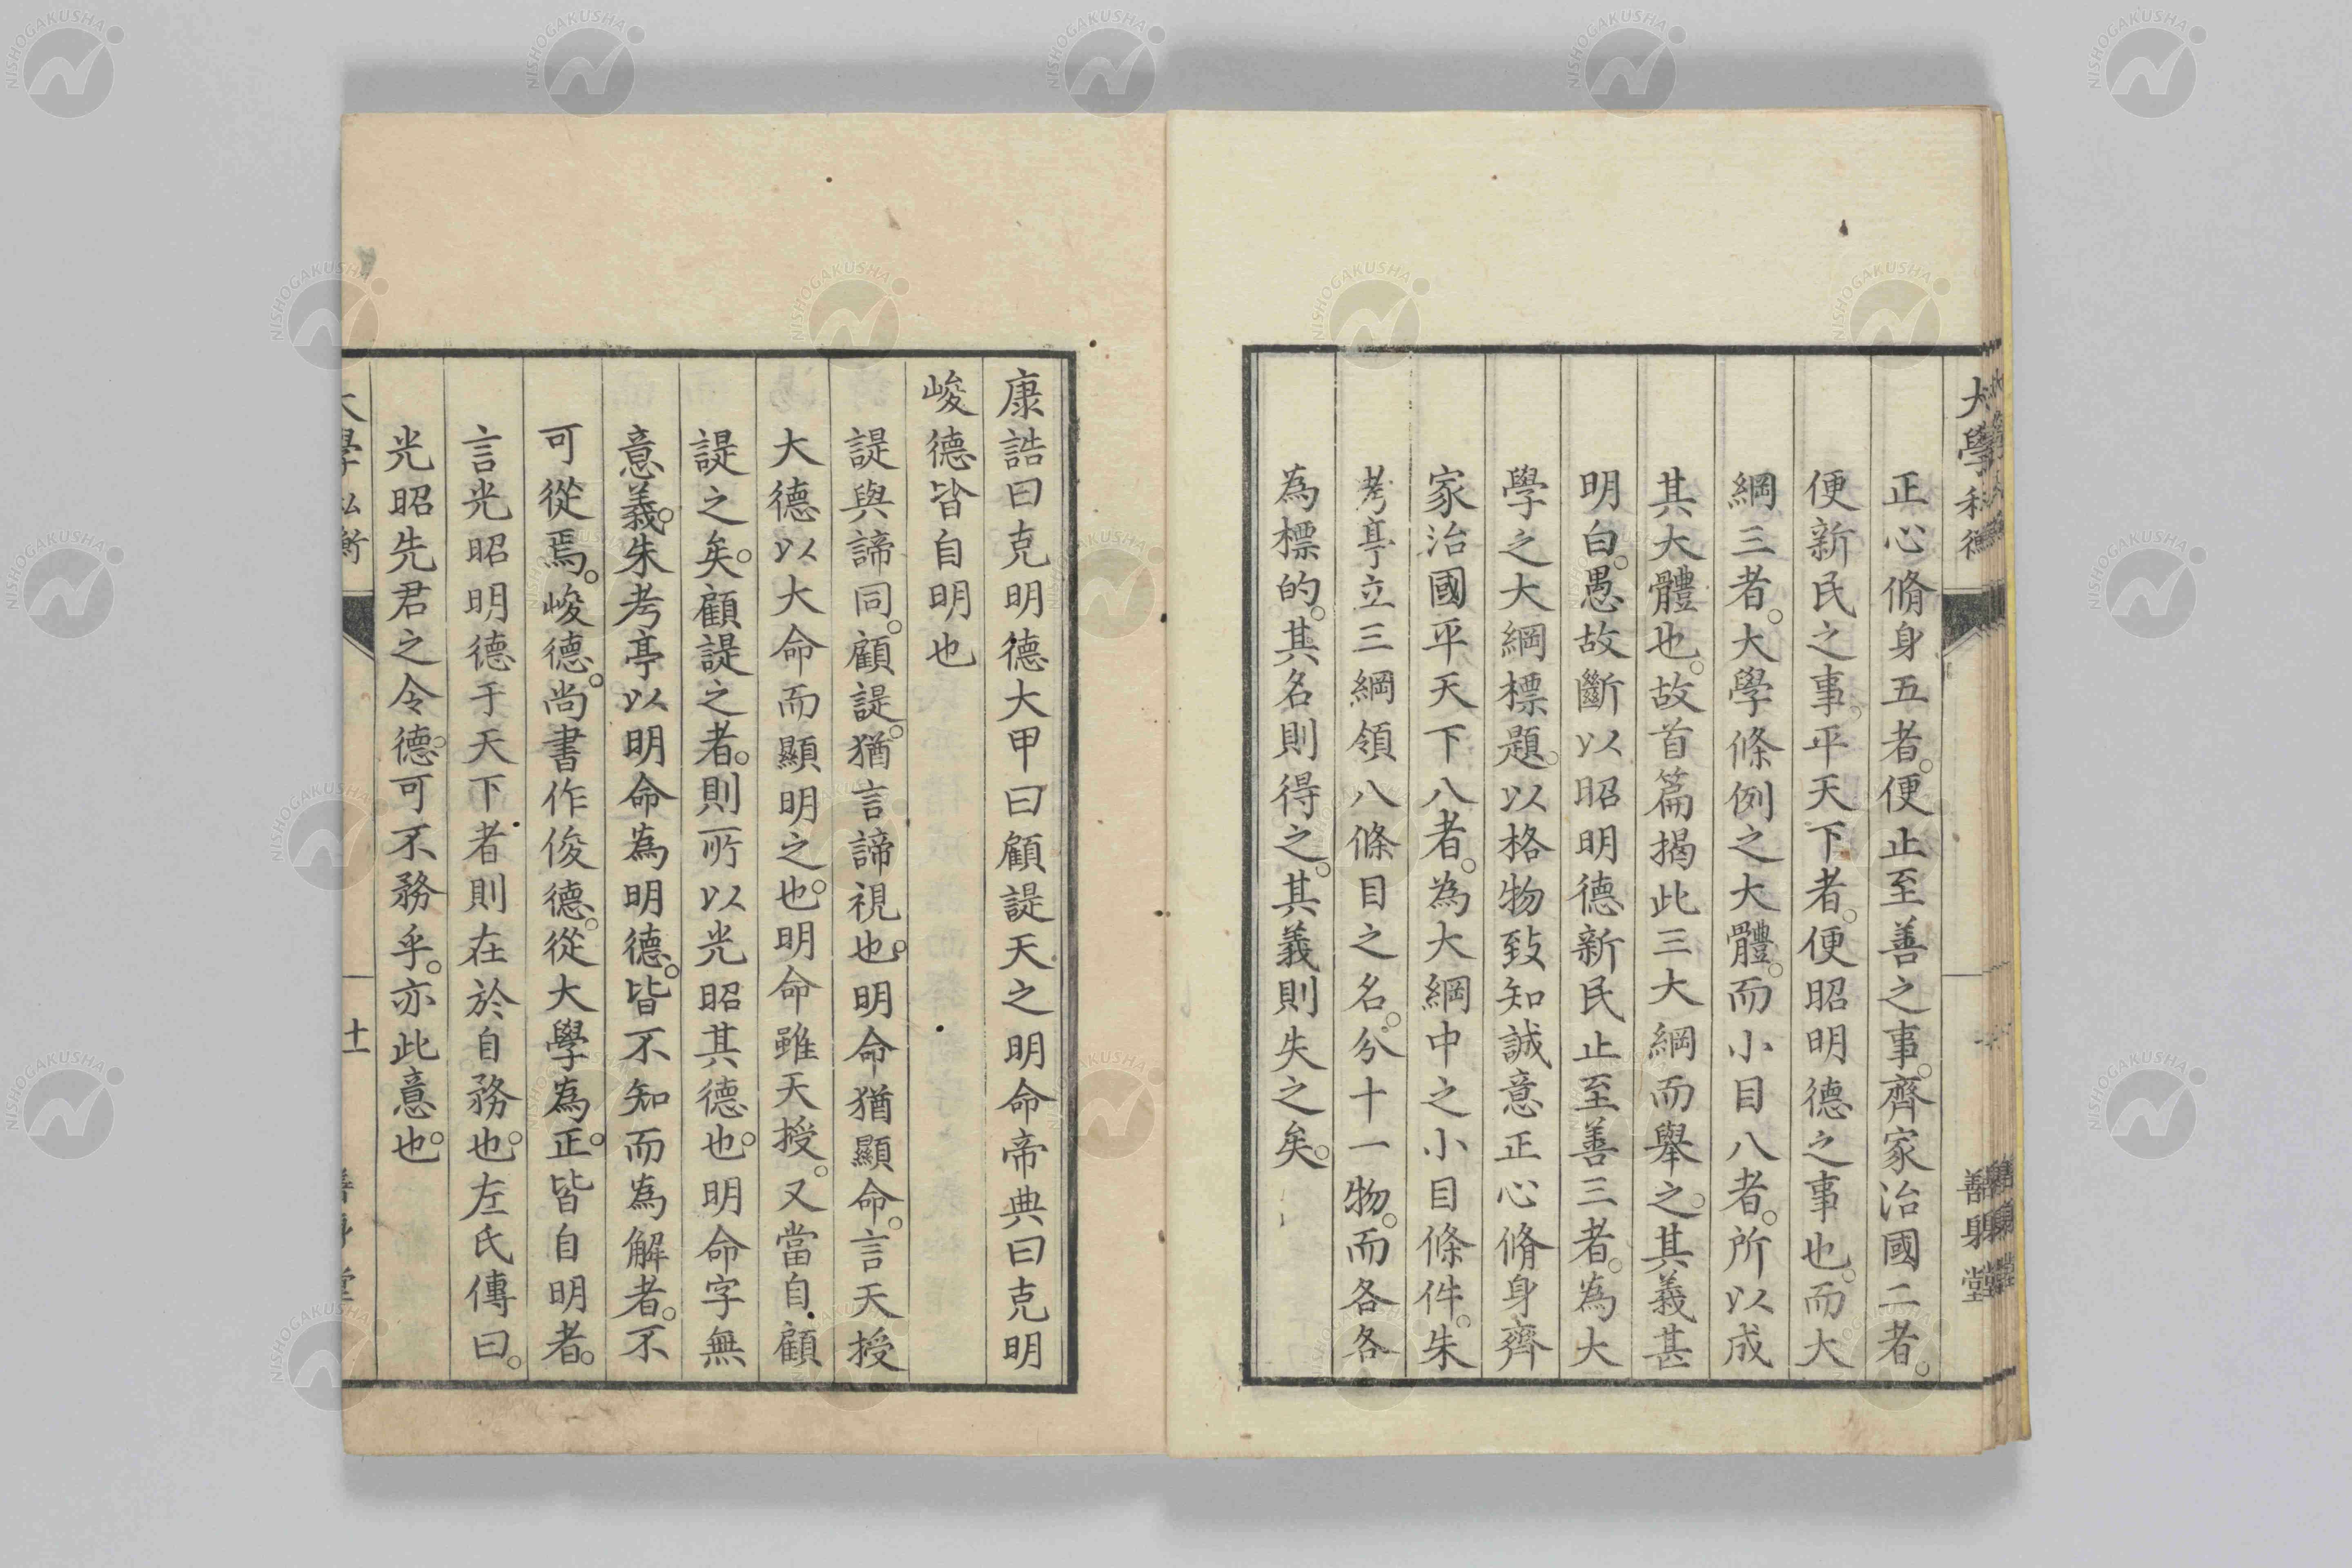 正心脩身五者。便止至善之事。齊家治國二者。
便新民之事。平天下者。便昭明德之事也。而大
綱三者。大學條例之大體。而小目八者。所以成
其大體也。故首篇揭此三大綱而舉之。其義甚
明白。愚故斷以昭明德新民止至善三者。為大
學之大綱標題。以格物致知誠意正心脩身齊
家治國平天下八者。為大綱中之小目條件。朱
考亭立三綱領八條目之名。分十一物。而各各
為標的。其名則得之。其義則失之矣。
康誥曰克明德大甲曰顧諟天之明命帝典曰克明
峻德皆自明也
諟與諦同。顧諟。猶言諦視也。明命猶顯命。言天授
大德以大命而顯明之也。明命雖天授。又當自顧
諟之矣。顧諟之者。則所以光昭其德也。明命字無
意義。朱考亭以明命為明德。皆不知而為解者。不
可從焉。峻德。尚書作俊德。從大學為正。皆自明者。
言光昭明德于天下者則在於自務也。左氏傳曰。
光昭先君之令德。可不務乎。亦此意也。
大學私衡
十一
善身堂
NISHOGAKUSHA